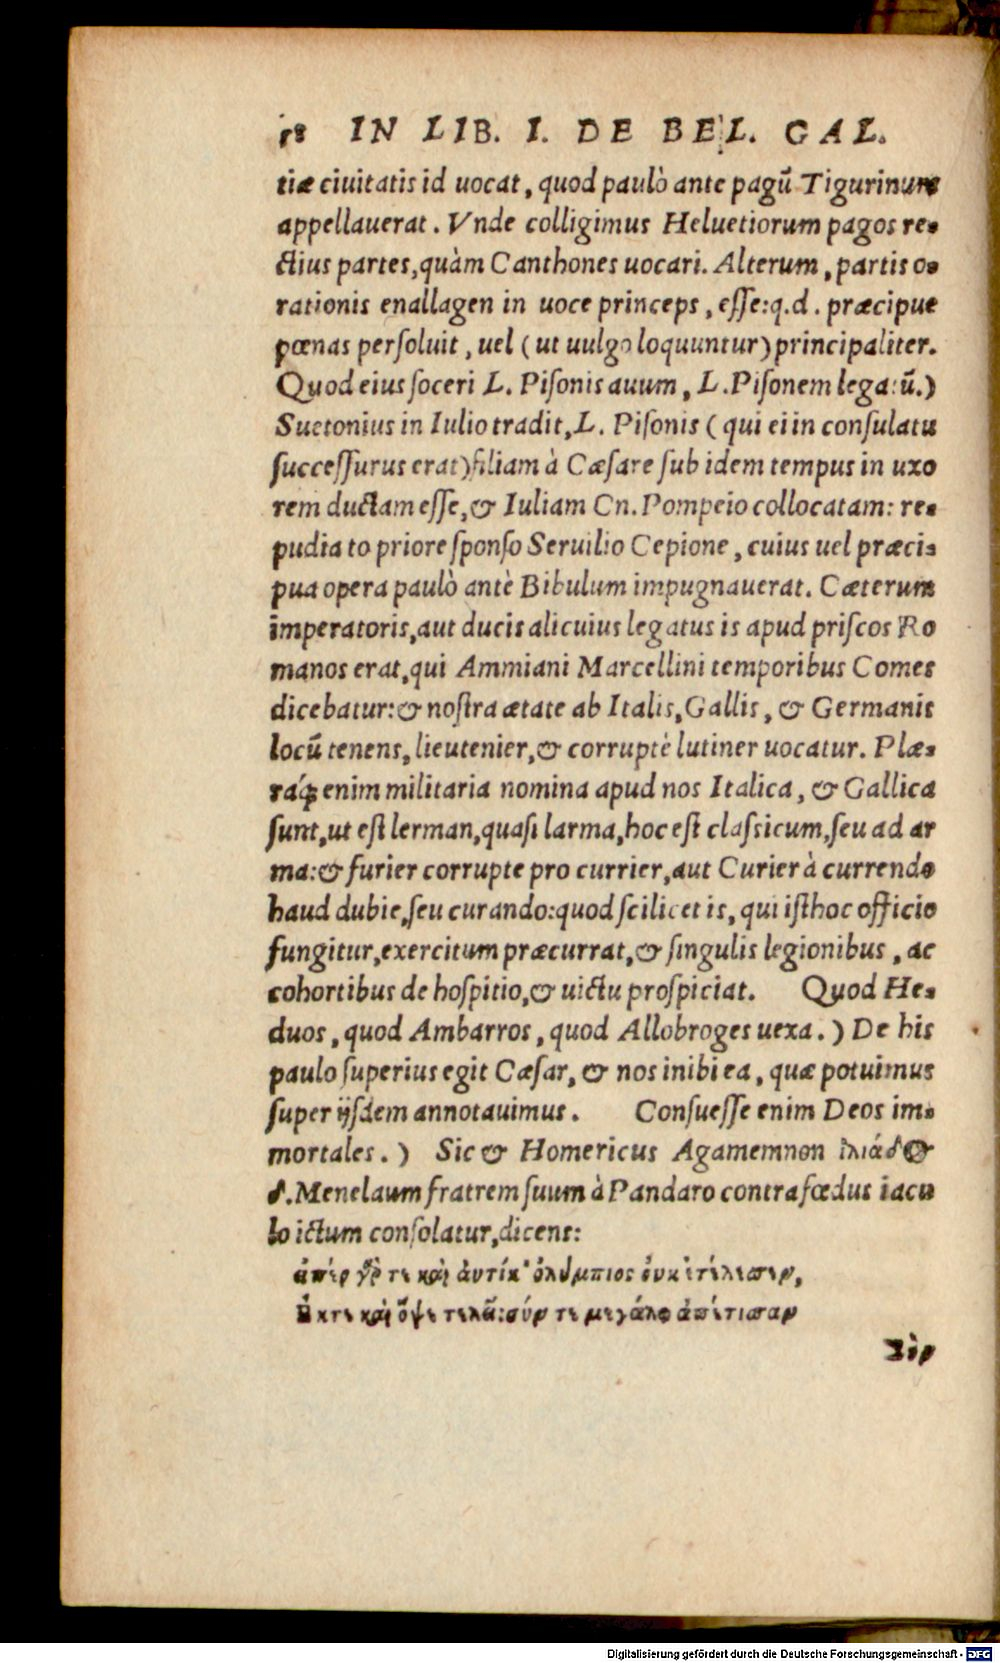 58 IN LIB. I. DE BEL. GAL.
tiæ ciuitatis id uocat, quod paulò ante pagũ Tigurinum
appellauerat. Vnde colligimus Heluetiorum pagos re-
ctius partes, quàm Canthones uocari. Alterum, partis o-
rationis enallagen in uoce princeps, esse: q.d. præcipue
pœnas persoluit, uel (ut uulgo loquuntur) principaliter.
Quod eius soceri L. Pisonis auum, L. Pisonem legatũ.)
Suetonius in Iulio tradit, L. Pisonis (qui ei in consulatu
successurus erat) filiam à Cæsare sub idem tempus in uxo
rem ductam esse, & Iuliam Cn. Pompeio collocatam: re-
pudiato priore sponso Seruilio Cepione, cuius uel præci-
pua opera paulò antè Bibulum impugnauerat. Cæterum
imperatoris, aut ducis alicuius legatus is apud priscos Ro
manos erat, qui Ammiani Marcellini temporibus Comes
dicebatur: & nostra ætate ab Italis, Gallis, & Germanis
locũ tenens, lieutenier, & corruptè lutiner uocatur. Plæ-
raq́; enim militaria nomina apud nos Italica, & Gallica
sunt, ut est lerman, quasi larma, hoc est classicum, seu ad ar
ma: & furier corrupte pro currier, aut Curier à currendo
haud dubie, seu curando: quod scilicet is, qui isthoc officio
fungitur, exercitum præcurrat, & singulis legionibus, ac
cohortibus de hospitio, & uictu prospiciat. Quod He-
duos, quod Ambarros, quod Allobroges uexa.) De his
paulo superius egit Cæsar, & nos inibi ea, quæ potuimus
super ijsdem annotauimus. Consuesse enim Deos im-
mortales.) Sic & Homericus Agamemnon ἰλιάδ@
δ. Menelaum fratrem suum à Pandaro contra fœdus iacu
lo ictum consolatur, dicens:
ἅπέρ γάρ τε καὶ ἀυτίκ' ὀλύμπιος ὀυκ ἐτέλεσεν,
Ἔκ τε καὶ ὄψε τελεῖ: σύν τε μεγάλῳ ἀπέτισαν
Σὺν